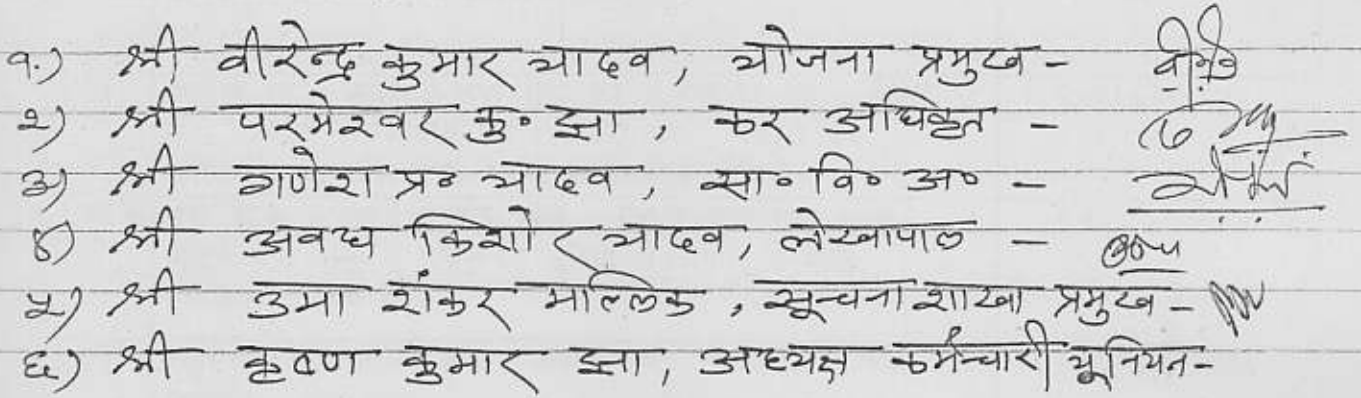 १.) श्री वीरेन्द्र कुमार यादव, योजना प्रमुख -
२) श्री परमेश्वर कु॰ झा, कर अधिकृत -
३) श्री गणेश प्र॰ यादव, सा॰ वि॰ अ॰ -
४) श्री अवध किशोर यादव, लेखापाल -
५) श्री उमा शंकर मल्लिक, सूचना शाखा प्रमुख -
६) श्री कृष्ण कुमार झा, अध्यक्ष कर्मचारी यूनियन -